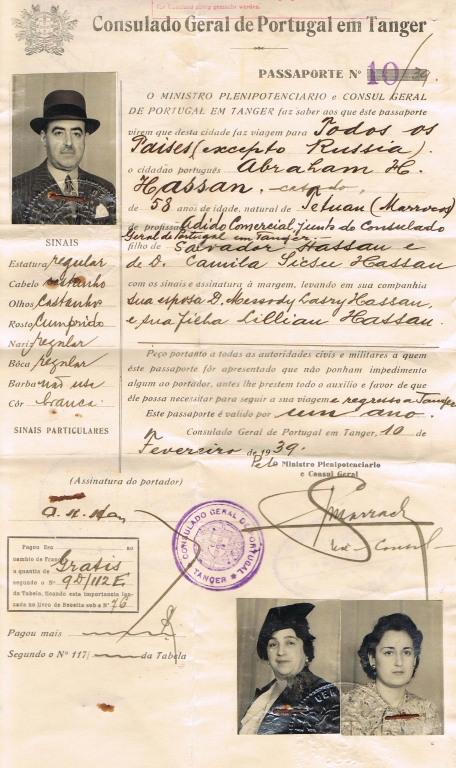 Consulado Geral de Portugal em Tanger
PASSAPORTE Nº 10/39.
O MINISTRO PLENIPOTENCIARIO e CONSUL GERAL
DE PORTUGAL EM TANGER faz saber aos que êste passaporte
virem que desta cidade faz viagem para Todos os
Paises (excepto Russia).
o cidadão português Abraham H.
Hassan, casado,
de 58 anos de idade, natural de Tetuan (Marrocos)
de profissão Adido Comercial junto do Consulado
Geral de Portugal em Tanger,
filho de Salvador Hassan e
de D. Camila Sicsu Hassan
com os sinais e assinatura à margem, levando em sua companhia
sua esposa D. Messody Lasry Hassan,
e sua filha Lillian Hassan.
SINAIS
Estatura regular
Cabelo castanho
Olhos Castanhos
Rosto Cumprido
Nariz regular
Bôca regular
Barba não usa
Côr branca
SINAIS PARTICULARES
Peço portanto a todas as autoridades civis e militares a quem
êste passaporte fôr apresentado que não ponham impedimento
algum ao portador, antes lhe prestem todo o auxilio e favor de que
êle possa necessitar para seguir a sua viagem e regresso a Tanger
Este passaporte é valido por um ano.
Consulado Geral de Portugal em Tanger, 10 de
Fevereiro de 1939.
Pelo Ministro Plenipotenciario
e Consul Geral
(Assinatura do portador)
CONSULADO GERAL DE PORTUGAL
TANGER
Pagou Esc ao
cambio de Francos
a quantia de Gratis
segundo o Nº 9D/112E.
da Tabela, ficando esta importancia lan-
zado no Livro de Receita sob o Nº 76
Pagou mais
Segundo o Nº 117/ da Tabela